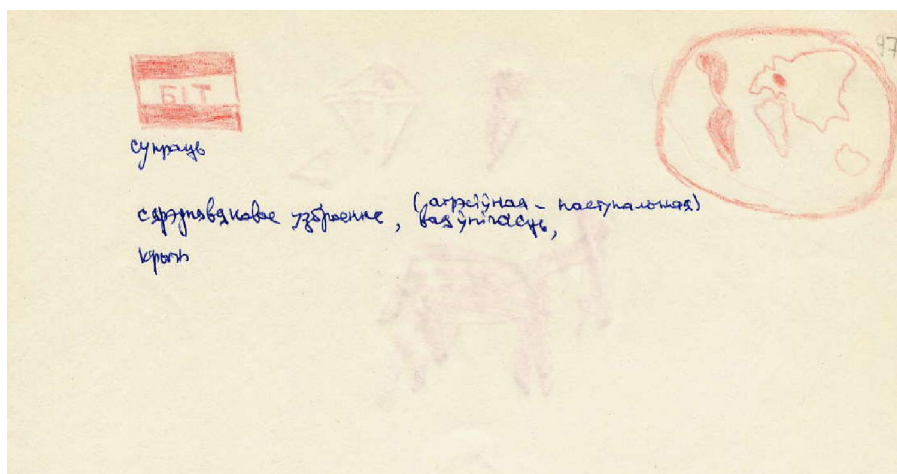 97
БІТ
супраць
сярэднявяковае узбраенне, (агрэсіўная - наступальная)
ваяўнічасць,
крыж